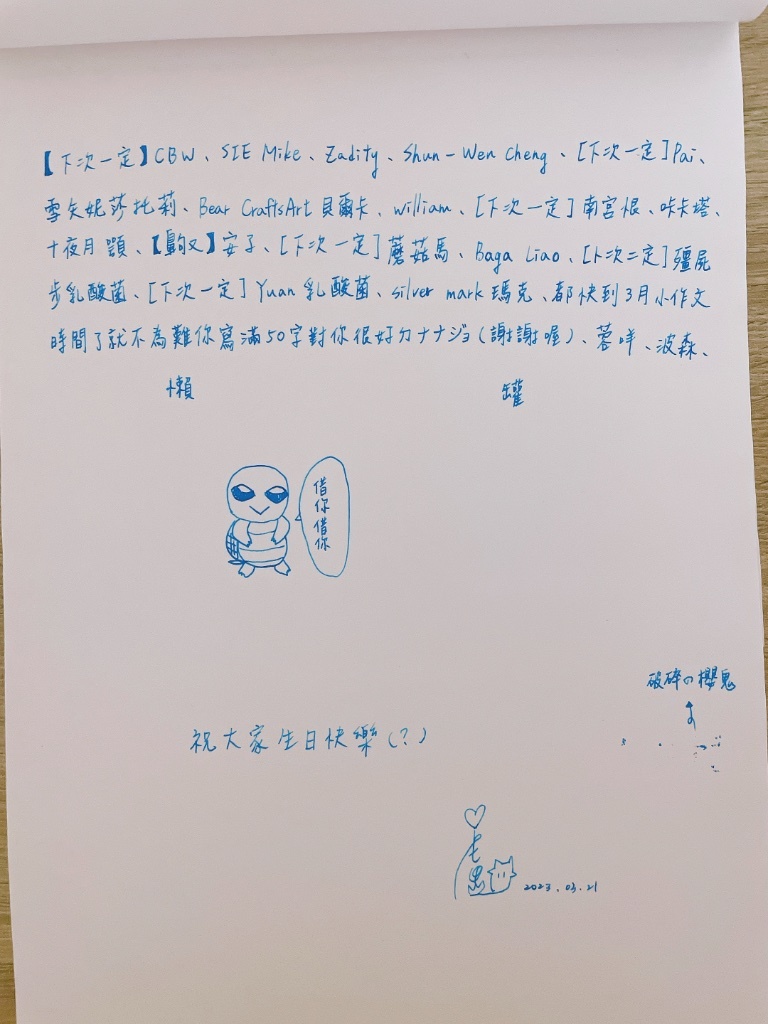 【下次一定】CBW、SIE Mike、Zadity、Shun-Wen Cheng、[下次一定]Pai、
雪矢妮莎托莉、Bear CraftsArt貝爾卡、william、[下次一定]南宮恨、咔卡塔、
十夜月 顎、安子、[下次一定]蘑菇馬、Baga Liao、[卜次二定]殭屍
步乳酸菌、[下次一定]Yuan乳酸菌、silver mark瑪克、都快到3月小作文
時間了就不為難你寫滿50字對你很好ㄉナナジョ(謝謝喔)、蓉咩、波森、
懶 罐
借你借你
破碎の櫻鬼
祝大家生日快樂(?)
2023.03.21